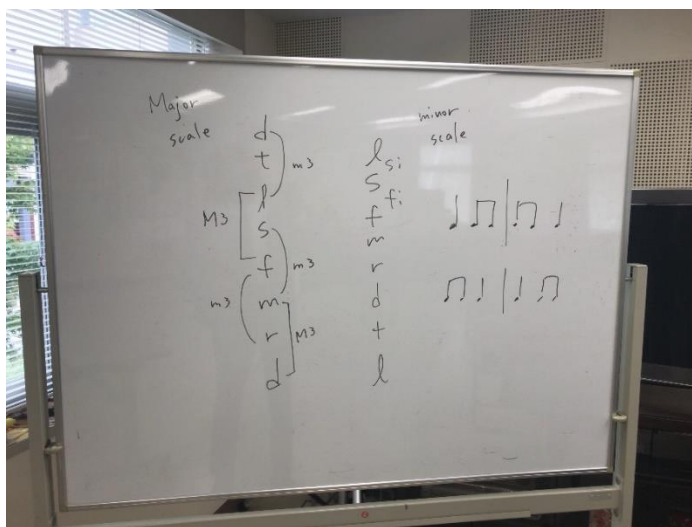 Major
scale
d
t
l
s
f
m
r
d
m3
M3
m3
m3
M3
minor
scale
l
si
s
fi
f
m
r
d
t
l